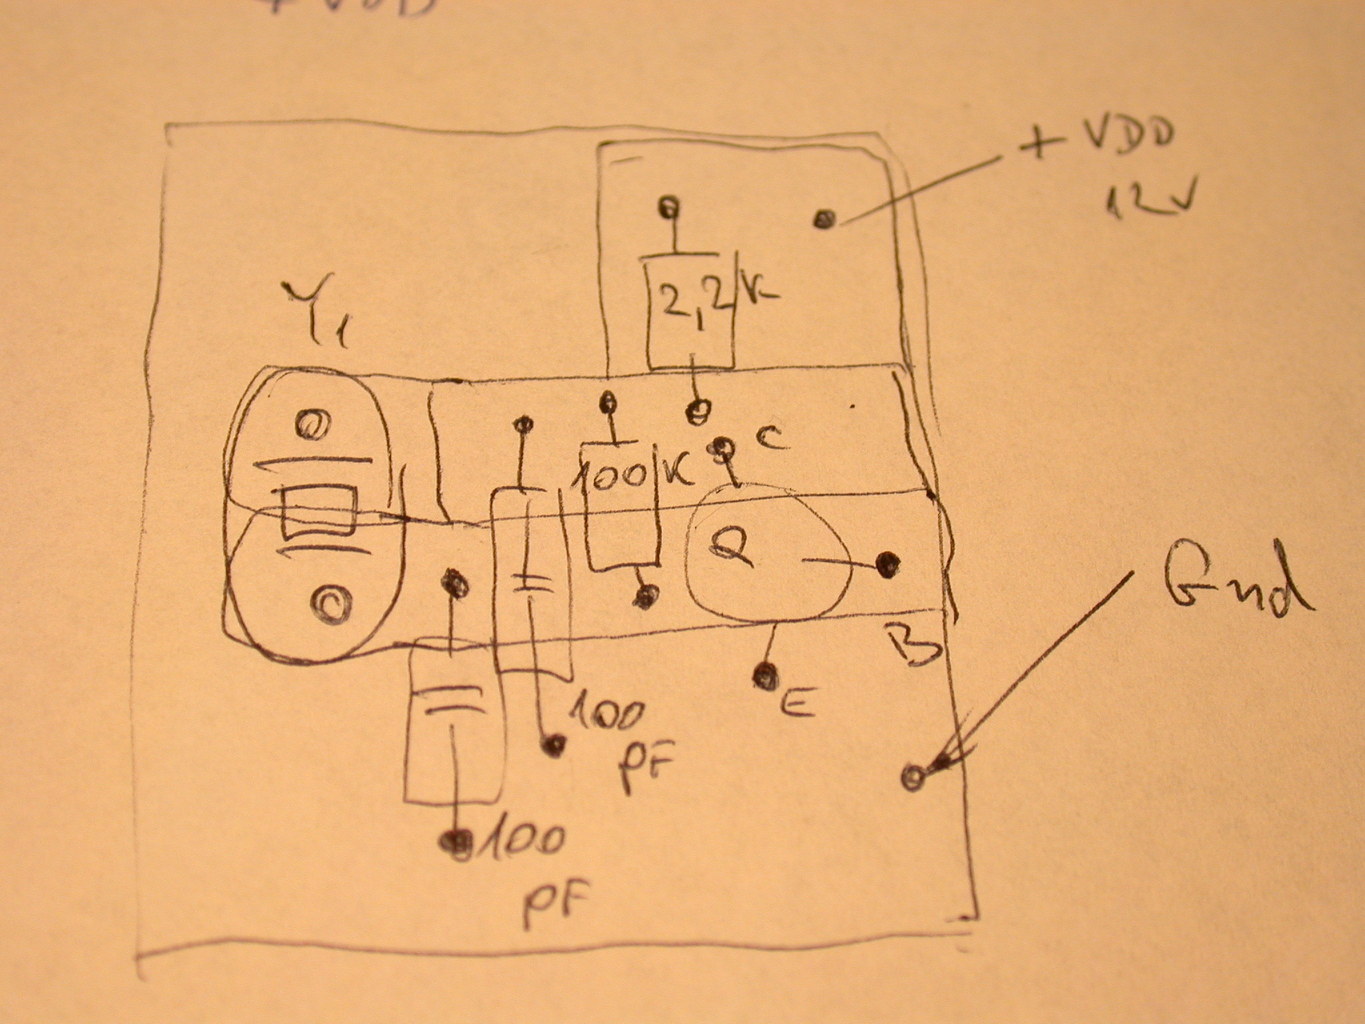 +VDD
+ VDD
12V
2,2K
Y1
C
100K
Q
Gnd
B
E
100
pF
100
pF